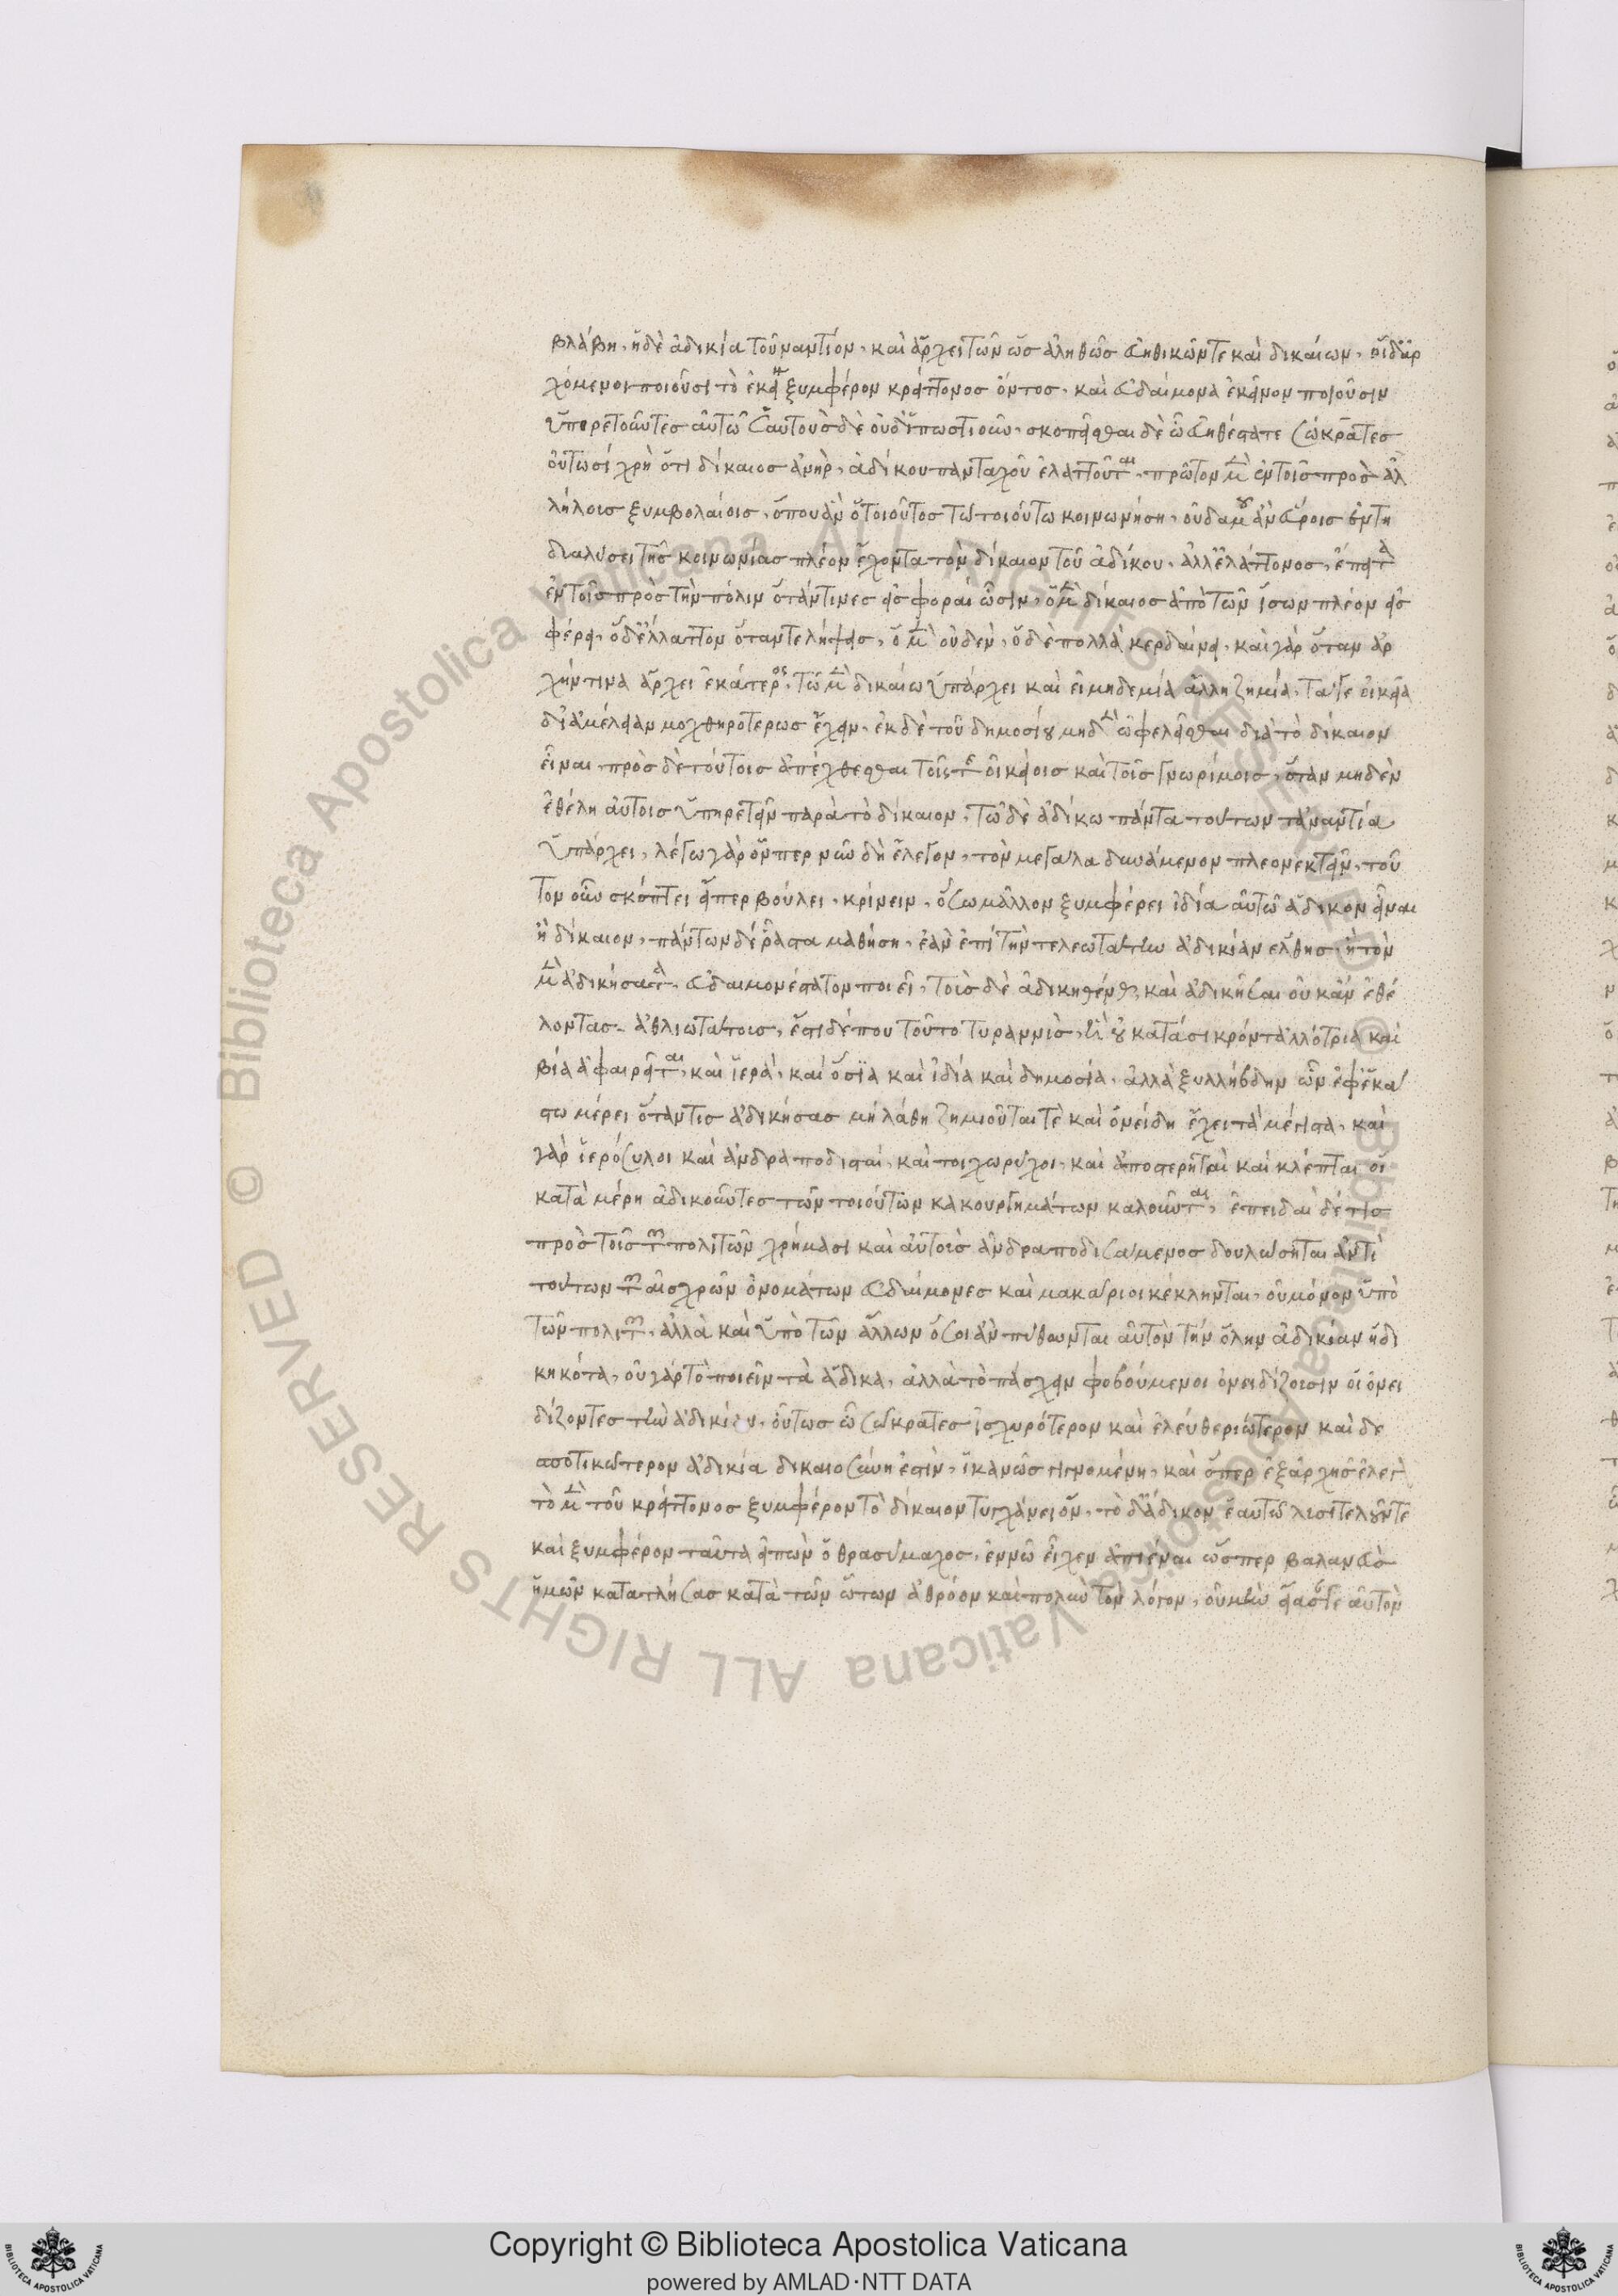 βλάβη, ἡ δὲ ἀδικία τοὐναντίον, καὶ ἄρχει τῶν ὡς ἀληθῶς εὐηθικῶν τε καὶ δικαίων, οἱ δ' ἀρ
χόμενοι ποιοῦσι τὸ ἐκείνου ξυμφέρον κρείττονος ὄντος, καὶ εὐδαίμονα ἐκεῖνον ποιοῦσιν
ὑπηρετοῦντες αὐτῷ ἑαυτοὺς δὲ οὐδ' ὁπωστιοῦν, σκοπεῖσθαι δὲ ὦ εὐηθέστατε σώκρατες
οὑτωσὶ χρὴ ὅτι δίκαιος ἀνὴρ, ἀδίκου πανταχοῦ ἔλαττον, πρῶτον μὲν ἐν τοῖς πρὸς ἀλ
λήλοις ξυμβολαίοις, ὅπου ἂν ὁ τοιοῦτος τῷ τοιούτῳ κοινωνήσῃ, οὐδαμοῦ ἂν εὕροις ἐν τῇ
διαλύσει τῆς κοινωνίας πλέον ἔχοντα τὸν δίκαιον τοῦ ἀδίκου, ἀλλ' ἐλάττονος, ἔπειτα
ἐν τοῖς πρὸς τὴν πόλιν ὅταν τινες εἰσφοραὶ ὦσιν, ὁ μὲν δίκαιος ἀπὸ τῶν ἴσων πλέον εἰσ
φέρει, ὁ δ' ἔλλαττον ὅταν τε λήψεις, ὁ μὲν οὐδὲν, ὁ δὲ πολλὰ κερδαίνει, καὶ γὰρ ὅταν ἀρ
χήν τινα ἄρχει ἑκάτερος, τῷ μὲν δικαίῳ ὑπάρχει καὶ εἰ μηδεμία ἄλλη ζημία, τά γε οἰκεῖα
δι' ἀμέλειαν μοχθηροτέρως ἔχειν, ἐκ δὲ τοῦ δημοσίου μηδὲν ὠφελεῖσθαι διὰ τὸ δίκαιον
εἶναι, πρὸς δὲ τούτοις ἀπέχθεσθαι τοῖς τε οἰκείοις καὶ τοῖς γνωρίμοις, ὅταν μηδὲν
ἐθέλῃ αὐτοῖς ὑπηρετεῖν παρὰ τὸ δίκαιον, τῷ δὲ ἀδίκῳ πάντα τούτων τἀναντία
ὑπάρχει, λέγω γὰρ ὅνπερ νῦν δὴ ἔλεγον, τὸν μεγάλα δυνάμενον πλεονεκτεῖν, τοῦ
τον οὖν σκόπει εἴπερ βούλει, κρίνειν, ὅσῳ μᾶλλον ξυμφέρει ἰδίᾳ αὐτῷ ἄδικον εἶναι
ἢ δίκαιον, πάντων δὲ ῥᾷστα μαθήσῃ, ἐὰν ἐπὶ τὴν τελεωτάτην ἀδικίαν ἔλθῃς, ἣ τὸν
μὲν ἀδικήσαντα, εὐδαιμονέστατον ποιεῖ, τοὺς δὲ ἀδικηθέντας, καὶ ἀδικῆσαι οὐκ ἂν ἐθέ
λοντας ἀθλιωτάτοις, ἔστι δέ που τοῦτο τυραννὶς, ἣ οὐ κατὰ σμικρὸν τἀλλότρια καὶ
βίᾳ ἀφαιρεῖται, καὶ ἱερά, καὶ ὅσια καὶ ἰδία καὶ δημοσία, ἀλλὰ ξυλλήβδην ὧν ἐφ' ἑκά
στῳ μέρει ὅταν τις ἀδικήσας μὴ λάθῃ ζημιοῦται τὲ καὶ ὀνείδη ἔχει τὰ μέγιστα, καὶ
γὰρ ἱερόσυλοι καὶ ἀνδραποδισταί, καὶ τοιχωρύχοι, καὶ ἀποστερηταὶ καὶ κλέπται οἱ
κατὰ μέρη ἀδικοῦντες τῶν τοιούτων κακουργημάτων καλοῦνται, ἐπειδὰν δέ τις
πρὸς τοῖς τῶν πολιτῶν χρήμασι καὶ αὐτοὺς ἀνδραποδισάμενος δουλώσηται ἀντὶ
τούτων τῶν αἰσχρῶν ὀνομάτων εὐδαίμονες καὶ μακάριοι κέκληνται, οὐ μόνον ὑπὸ
τῶν πολιτῶν, ἀλλὰ καὶ ὑπὸ τῶν ἄλλων ὅσοι ἂν πύθωνται αὐτὸν τὴν ὅλην ἀδικίαν ἠδι
κηκότα, οὐ γὰρ τὸ ποιεῖν τὰ ἄδικα, ἀλλὰ τὸ πάσχειν φοβούμενοι ὀνειδίζουσιν οἱ ὀνει
δίζοντες τὴν ἀδικίαν, οὕτως ὦ σώκρατες ἰσχυρότερον καὶ ἐλευθεριώτερον καὶ δε
σποτικώτερον ἀδικία δικαιοσύνη ἐστὶν, ἱκανῶς γιγνομένη, καὶ ὅπερ ἐξ ἀρχῆς ἔλεγον
τὸ μὲν τοῦ κρείττονος ξυμφέρον τὸ δίκαιον τυγχάνει ὂν, τὸ δ' ἄδικον ἑαυτῷ λυσιτελοῦν τε
καὶ ξυμφέρον ταῦτα εἰπὼν ὁ θρασύμαχος, ἐν νῷ εἶχεν ἀπιέναι ὥσπερ βαλανεὺς
ἡμῶν καταντλήσας κατὰ τῶν ὤτων ἀθρόον καὶ πολὺν τὸν λόγον, οὐ μὴν εἴασάν γε αὐτὸν